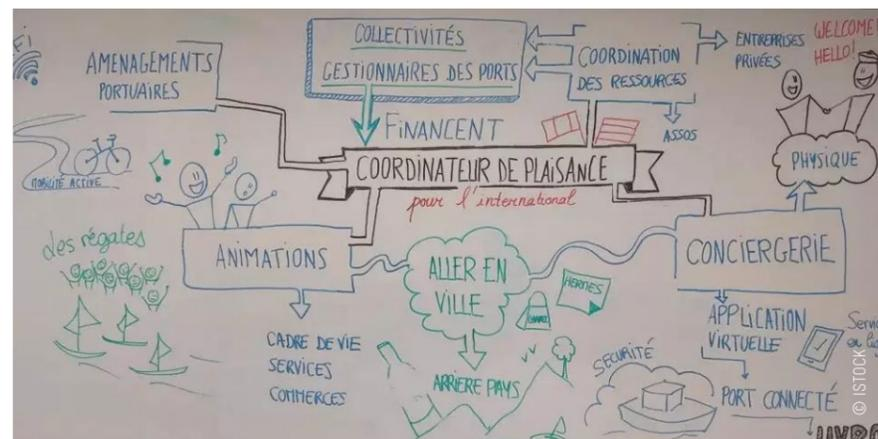 Fi
AMENAGEMENTS
PORTUAIRES
COLLECTIVITÉS
GESTIONNAIRES DES PORTS
COORDINATION
DES RESSOURCES
ENTREPRISES
PRIVÉES
WELCOME!
HELLO!
ASSOS
FINANCENT
PHYSIQUE
COORDINATEUR DE PLAISANCE
pour l'international
MOBILITÉ ACTIVE
des régates
ANIMATIONS
ALLER EN
VILLE
HERMES
CONCIERGERIE
CADRE DE VIE
SERVICES
COMMERCES
ARRIÈRE PAYS
SECURITÉ
APPLICATION
VIRTUELLE
PORT CONNECTÉ
© ISTOCK